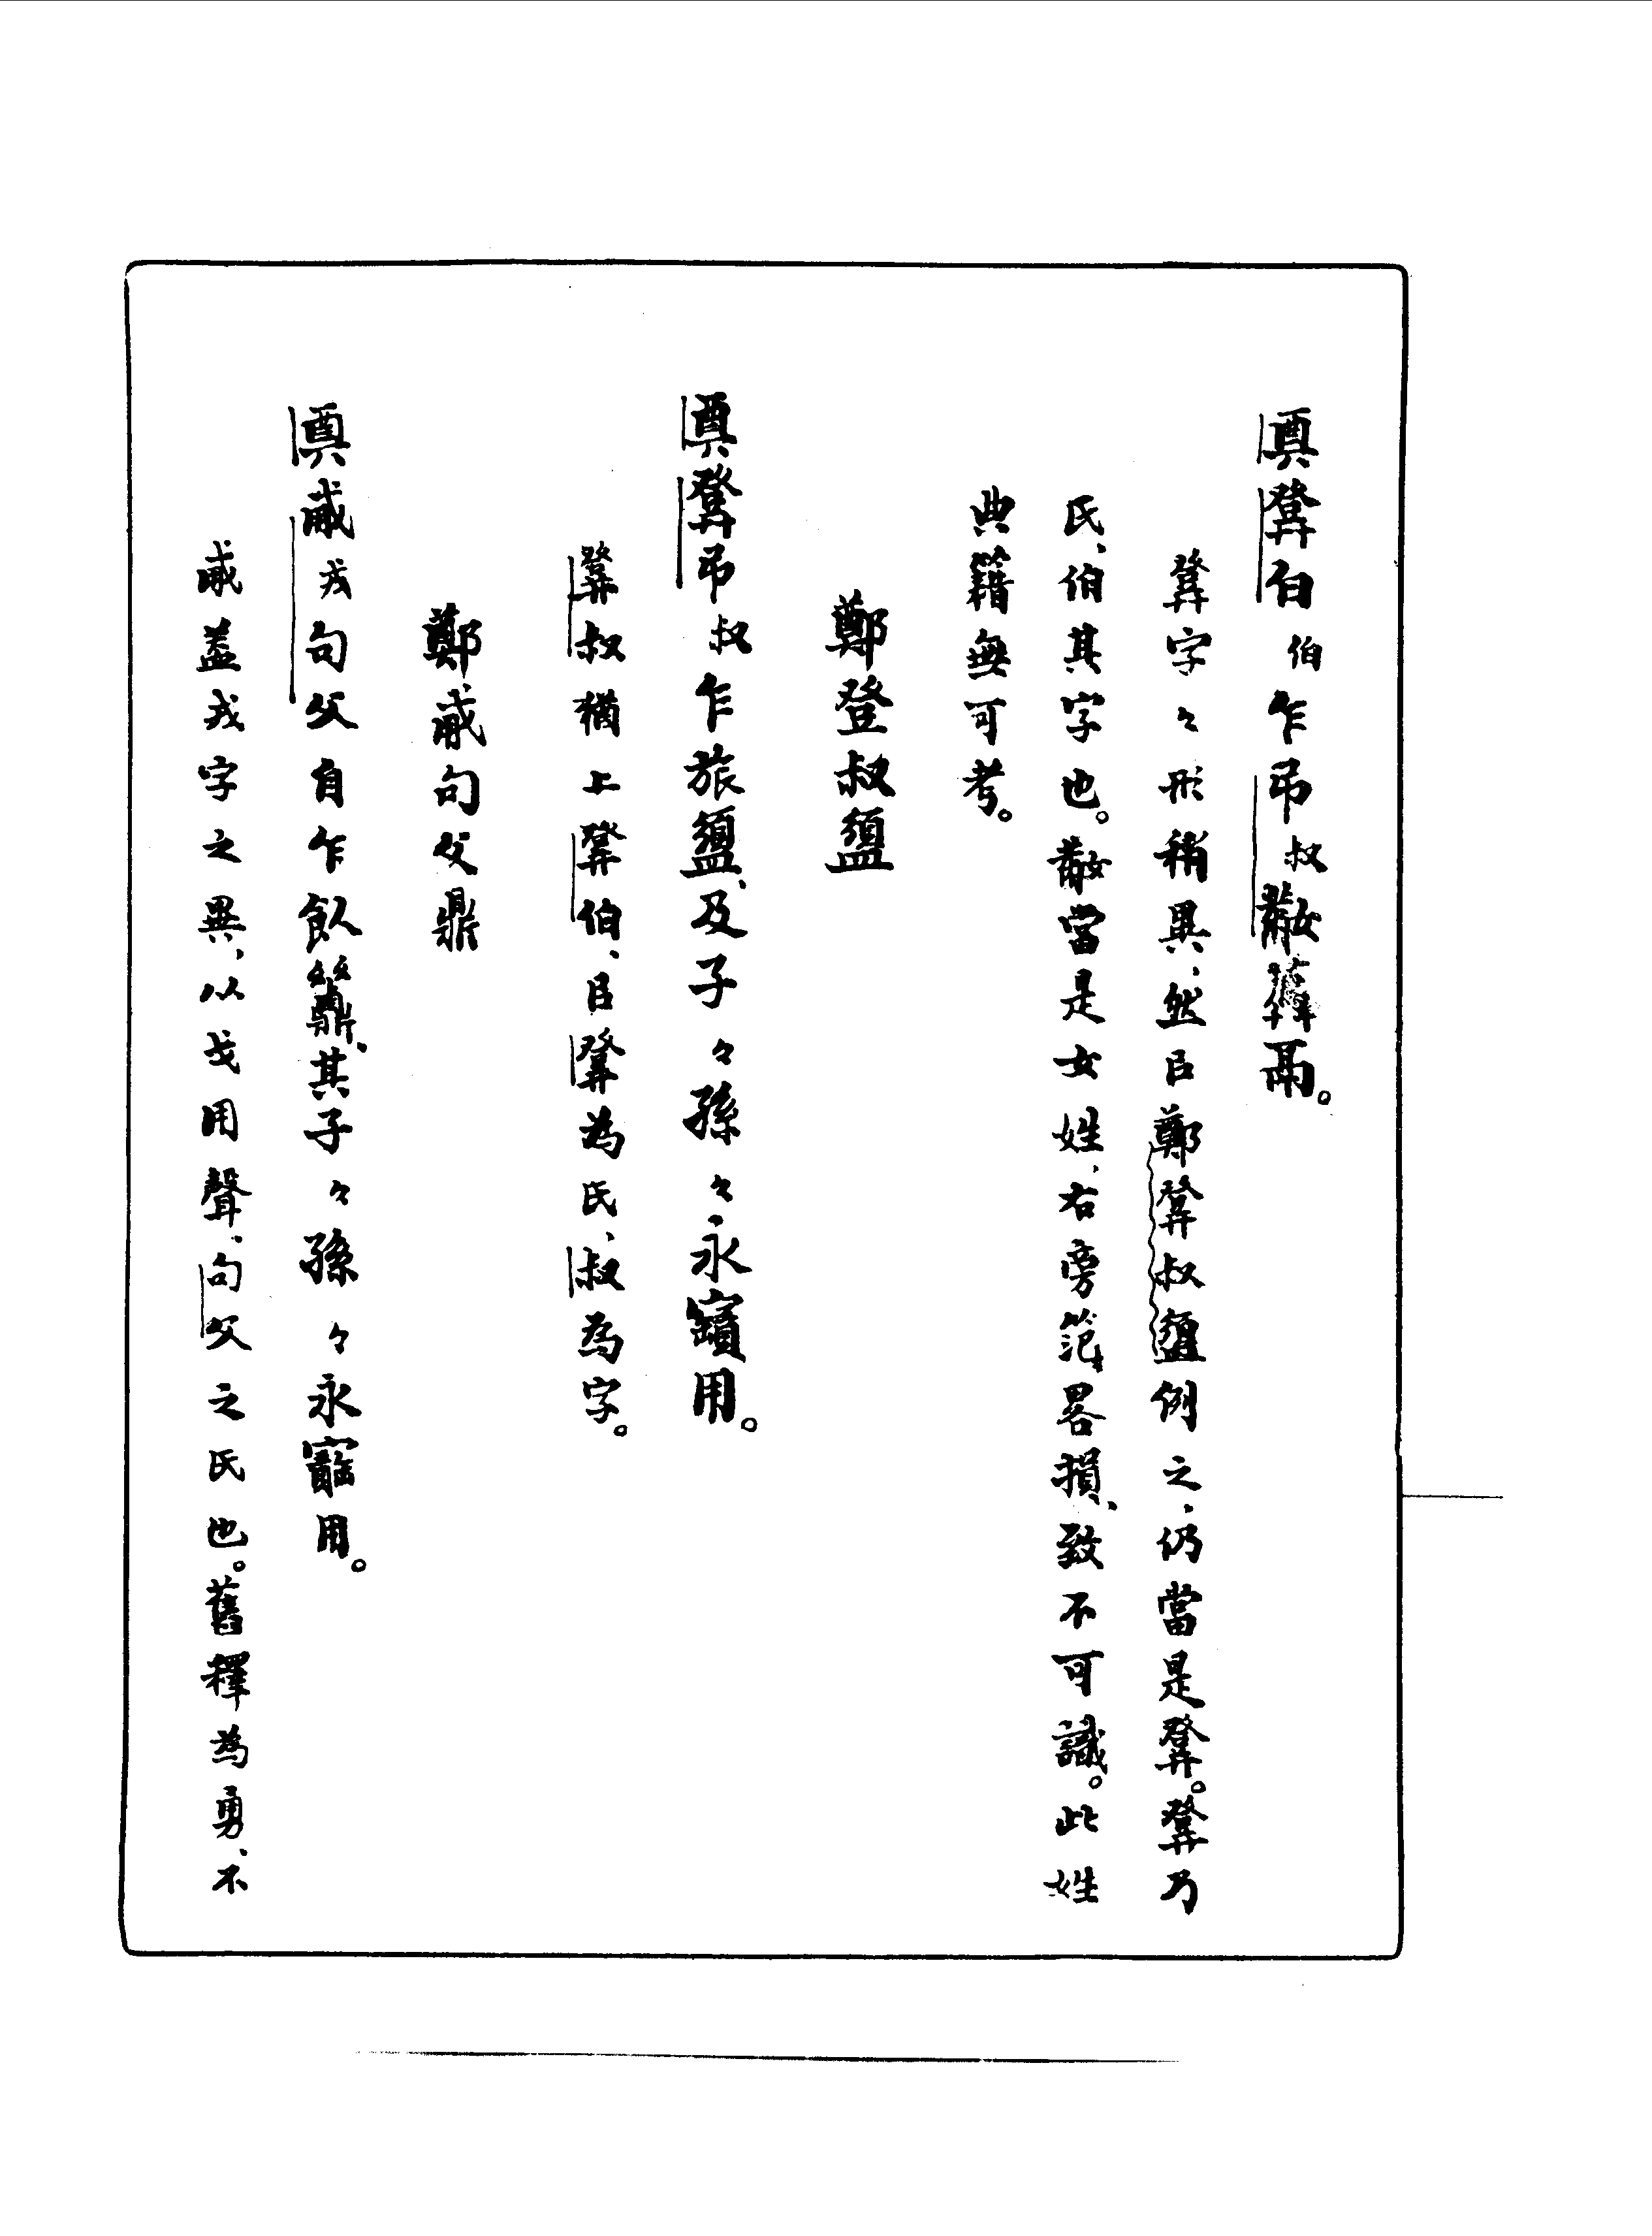 奠𤼷白伯乍弔叔𣫔鬲。
𤼷字々形稍異、然㠯鄭𤼷叔盨例之、仍當是𤼷。𤼷乃
氏、伯其字也。當是女姓、右旁範畧損、致不可識。此姓
典籍無可考。
鄭登叔盨
奠𤼷弔叔乍旅盨、及子々孫々、永寶用。
𤼷叔猶上𤼷伯、㠯𤼷為氏、叔為字。
鄭㦷句父鼎
奠㦷戎句父自乍飤鼎、其子々孫々永寶用。
㦷蓋戎字之異、以戈用聲、句父之氏也。舊釋為勇、不